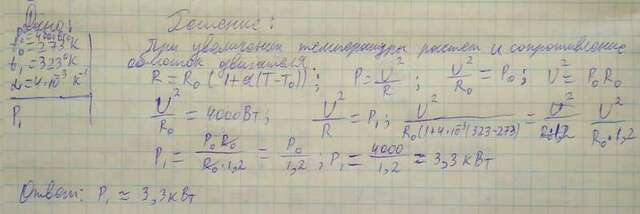 Дано:
P₀=4000Вт
t₀=273°K
t₁=323°K
α=4·10⁻³ K⁻¹
P₁
Решение:
При увеличении температуры растет и сопротивление
обмоток двигателя
R = R₀(1+α(T-T₀)); P=U²/R; U²/R₀=P₀; U²=P₀R₀
U²/R₀ = 4000Вт; U²/R = P₁; U²/R₀(1+4·10⁻³(323-273)) = U²/R₀·1,2 U²/R₀·1,2
P₁ = P₀R₀/R₀·1,2 = P₀/1,2; P₁ = 4000/1,2 ≈ 3,3 кВт
Ответ: P₁ ≈ 3,3 кВт